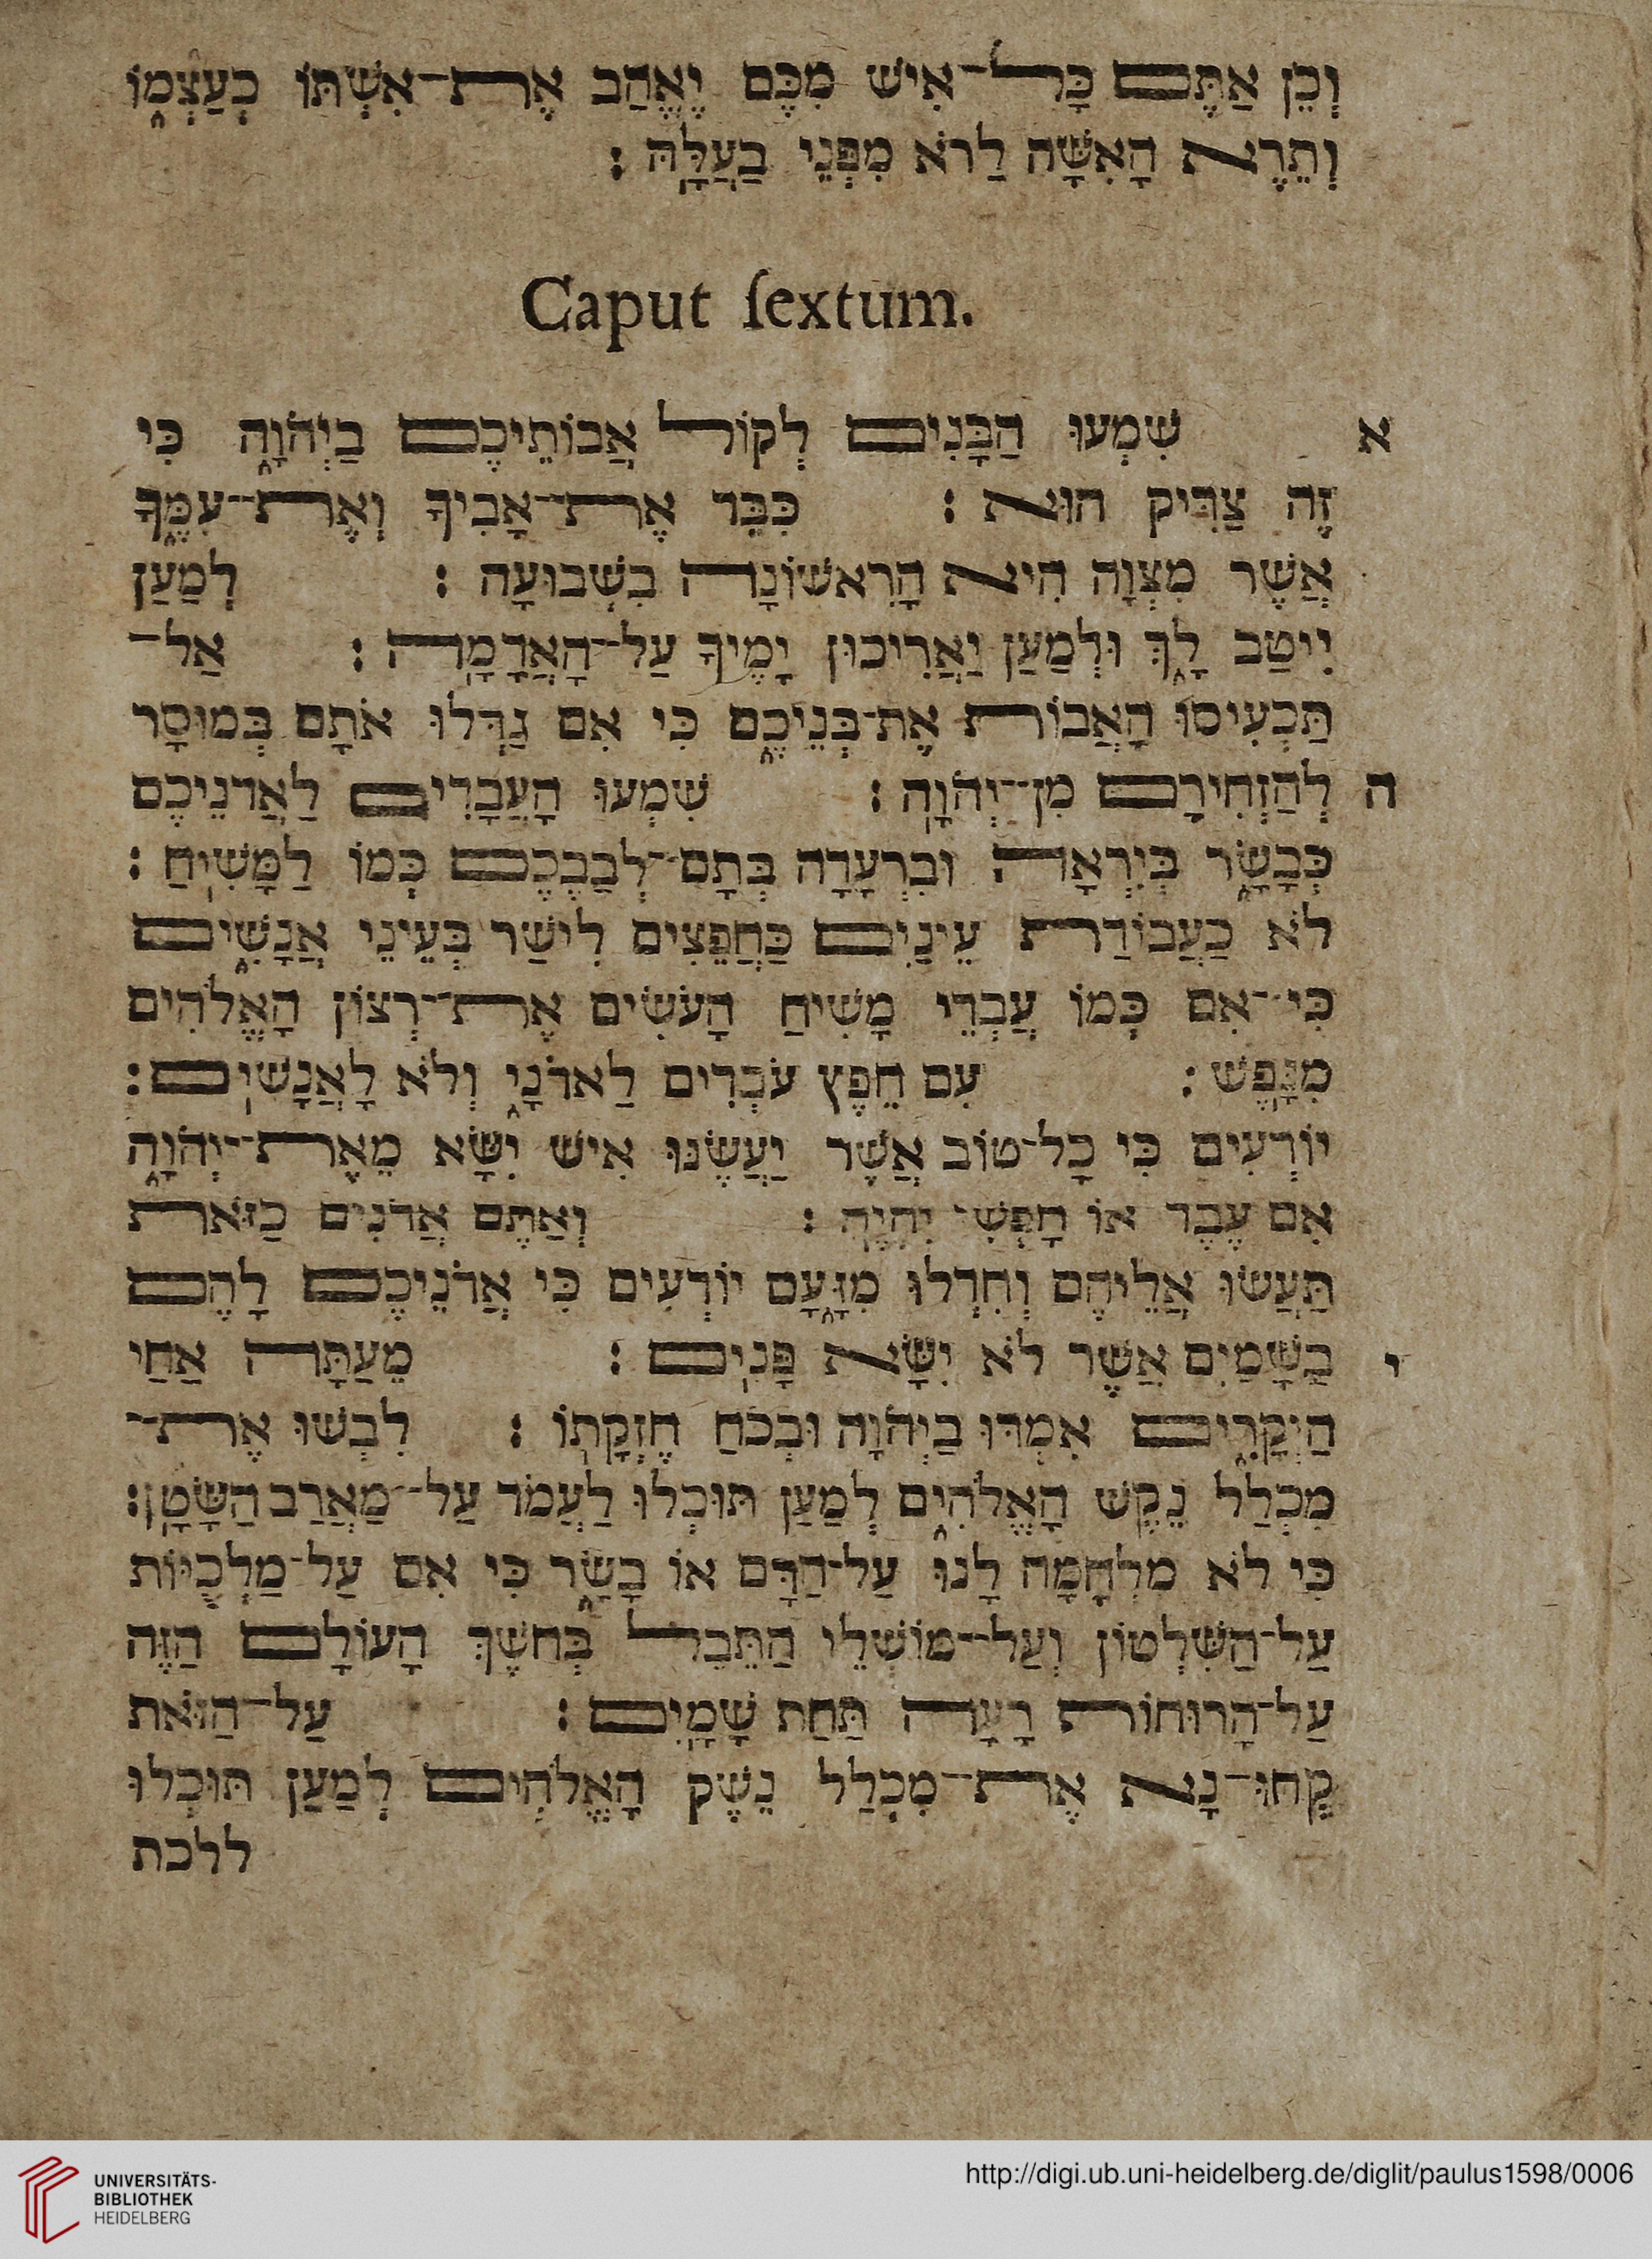 וְכֵן אַתֶּם כָּל־אִישׁ מִכֶּם יֶאֱהַב אֶת־אִשְׁתּוֹ כְעַצְמוֹ
וְתֵרֶא הָאִשָּׁה לַרֹא מִפְּנֵי בַעֲלָּהּ :
Caput ſextum.
א שִׁמְעוּ הַבָּנִים לְקוֹל אֲבוֹתֵיכֶם בַּיְהֹוָה כִּי
זֶה צַדִּיק הוּא : כִּבֵּד אֶת־אָבִיךָ וְאֶת־עִמֶּךָ
אֲשֶׁר מִצְוָה הִיא הָרִאשׁוֹנָה בִּשְׁבוּעָה : לְמַעַן
יִיטַב לָךְ וּלְמַעַן יַאֲרִיכוּן יָמֶיךָ עַל־הָאֲדָמָה : אַל־
תַּכְעִיסוּ הָאֲבוֹת אֶת־בְּנֵיכֶם כִּי אִם גַּדְּלוּ אֹתָם בְּמוּסָר
ה לְהַזְחִירָם מִן־יְהֹוָה : שִׁמְעוּ הָעֲבָדִים לַאֲדֹנֵיכֶם
כְּבָשָׂר בְּיִרְאָה וּבִרְעָדָה בְּתָם־לְבַבְכֶם כְּמוֹ לַמָּשִׁיחַ :
לֹא כַעֲבוֹדַת עֵינַיִם כַּחֲפֵצִים לִישַׁר בְּעֵינֵי אֲנָשִׁים
כִּי־אִם כְּמוֹ עַבְדֵי מָשִׁיחַ הָעֹשִׂים אֶת־רְצוֹן הָאֱלֹהִים
מִנֶּפֶשׁ : עִם חֵפֶץ עֹבְדִים לַאדֹנָי וְלֹא לָאֲנָשִׁים :
יוֹדְעִים כִּי כָל־טוֹב אֲשֶׁר יַעֲשֶׂנּוּ אִישׁ יִשָּׂא מֵאֶת־יְהֹוָה
אִם עֶבֶד אוֹ חָפְשִׁי יִהְיֶה : וְאַתֶּם אֲדֹנִים כַּזֹּאת
תַּעֲשׂוּ אֲלֵיהֶם וְחִדְלוּ מִזָּעָם יוֹדְעִים כִּי אֲדֹנֵיכֶם לָהֶם
י בַּשָּׁמַיִם אֲשֶׁר לֹא יִשָּׂא פָּנִים : מֵעַתָּה אַחַי
הַיְקָרִים אִמְדוּ בַּיְהֹוָה וּבְכֹחַ חֶזְקָתוֹ : לִבְשׁוּ אֶת־
מִכְלַל נֵקֶשׁ הָאֱלֹהִים לְמַעַן תּוּכְלוּ לַעֲמֹד עַל־מַאֲרַב הַשָּׂטָן :
כִּי לֹא מִלְחָמָה לָנוּ עַל־הַדָּם אוֹ בָשָׂר כִּי אִם עַל־מַלְכֻיּוֹת
עַל־הַשִּׁלְטוֹן וְעַל־מוֹשְׁלֵי הַתֵּבֵל בְּחֹשֶׁךְ הָעוֹלָם הַזֶּה
עַל־הָרוּחוֹת רָעָה תַּחַת שָׁמָיִם : עַל־הַזֹּאת
קְחוּ־נָא אֶת־מִכְלַל נֵשֶׁק הָאֱלֹהִים לְמַעַן תּוּכְלוּ
ללכת
UNIVERSITÄTS-
BIBLIOTHEK
HEIDELBERG
http://digi.ub.uni-heidelberg.de/diglit/paulus1598/0006